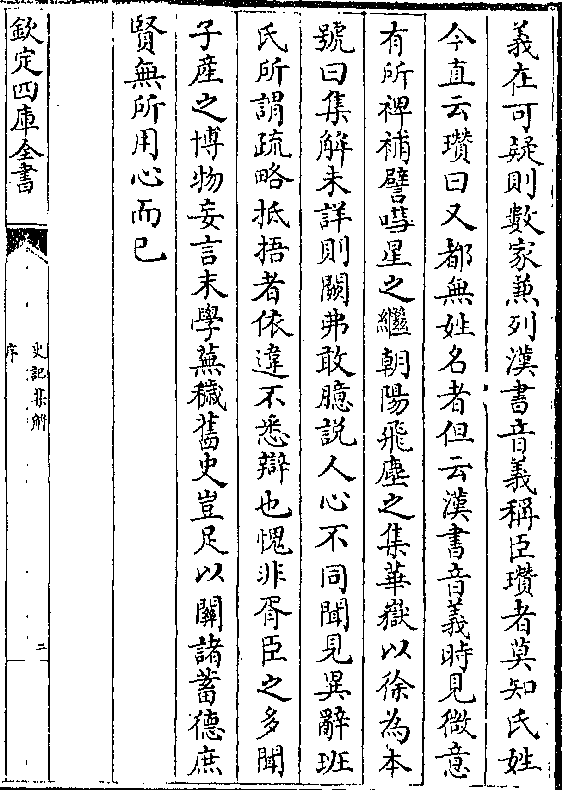 義在可疑則數家兼列漢書音義稱臣瓚者莫知氏姓
今直云瓚曰又都無姓名者但云漢書音義時見微意
有所裨補譬嘒星之繼朝陽飛塵之集華嶽以徐為本
號曰集解未詳則闕弗敢臆説人心不同聞見異辭班
氏所謂疏略抵捂者依違不悉辯也愧非胥臣之多聞
子産之博物妄言末學蕪穢舊史豈足以關諸蓄德庶
賢無所用心而已
欽定四庫全書
史記集解
序
二